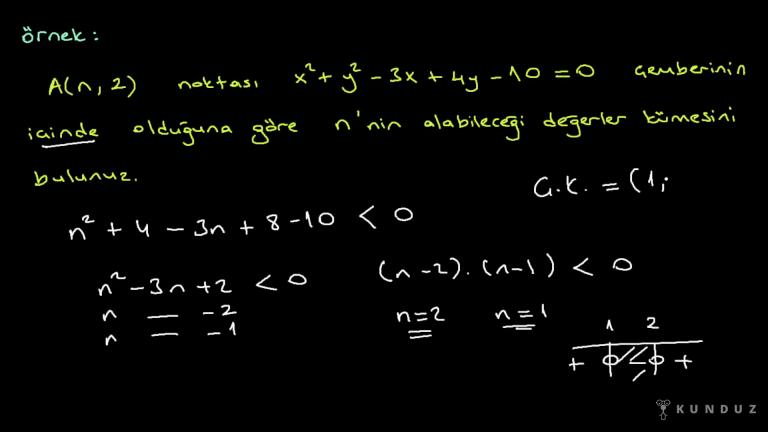 örnek:
A(n, 2) noktası x² + y² - 3x + 4y - 10 = 0 çemberinin
içinde olduğuna göre n'nin alabileceği değerler kümesini
bulunuz.
Ç.K. = (1;
n² + 4 - 3n + 8 - 10 < 0
n² - 3n + 2 < 0 (n - 2). (n - 1) < 0
n -2
n -1
n = 2 n = 1
1 2
+ - +
KUNDUZ